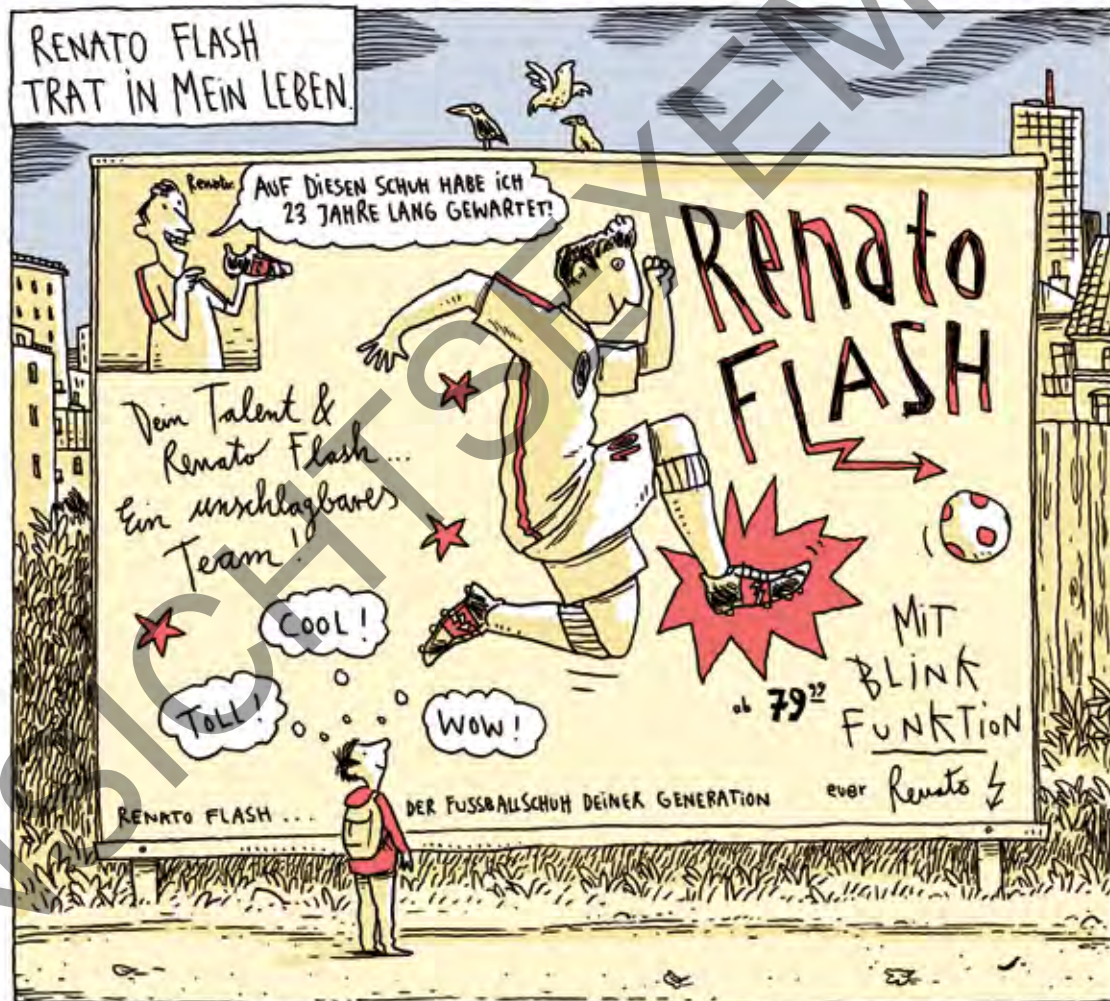 RENATO FLASH
TRAT IN MEIN LEBEN.
Renato
AUF DIESEN SCHUH HABE ICH
23 JAHRE LANG GEWARTET!
Renato
FLASH
Dein Talent &
Renato Flash...
Ein unschlagbares
Team!
COOL!
TOLL!
WOW!
ab 79⁹⁹
MIT
BLINK
FUNKTION
euer Renato
RENATO FLASH ... DER FUSSBALLSCHUH DEINER GENERATION